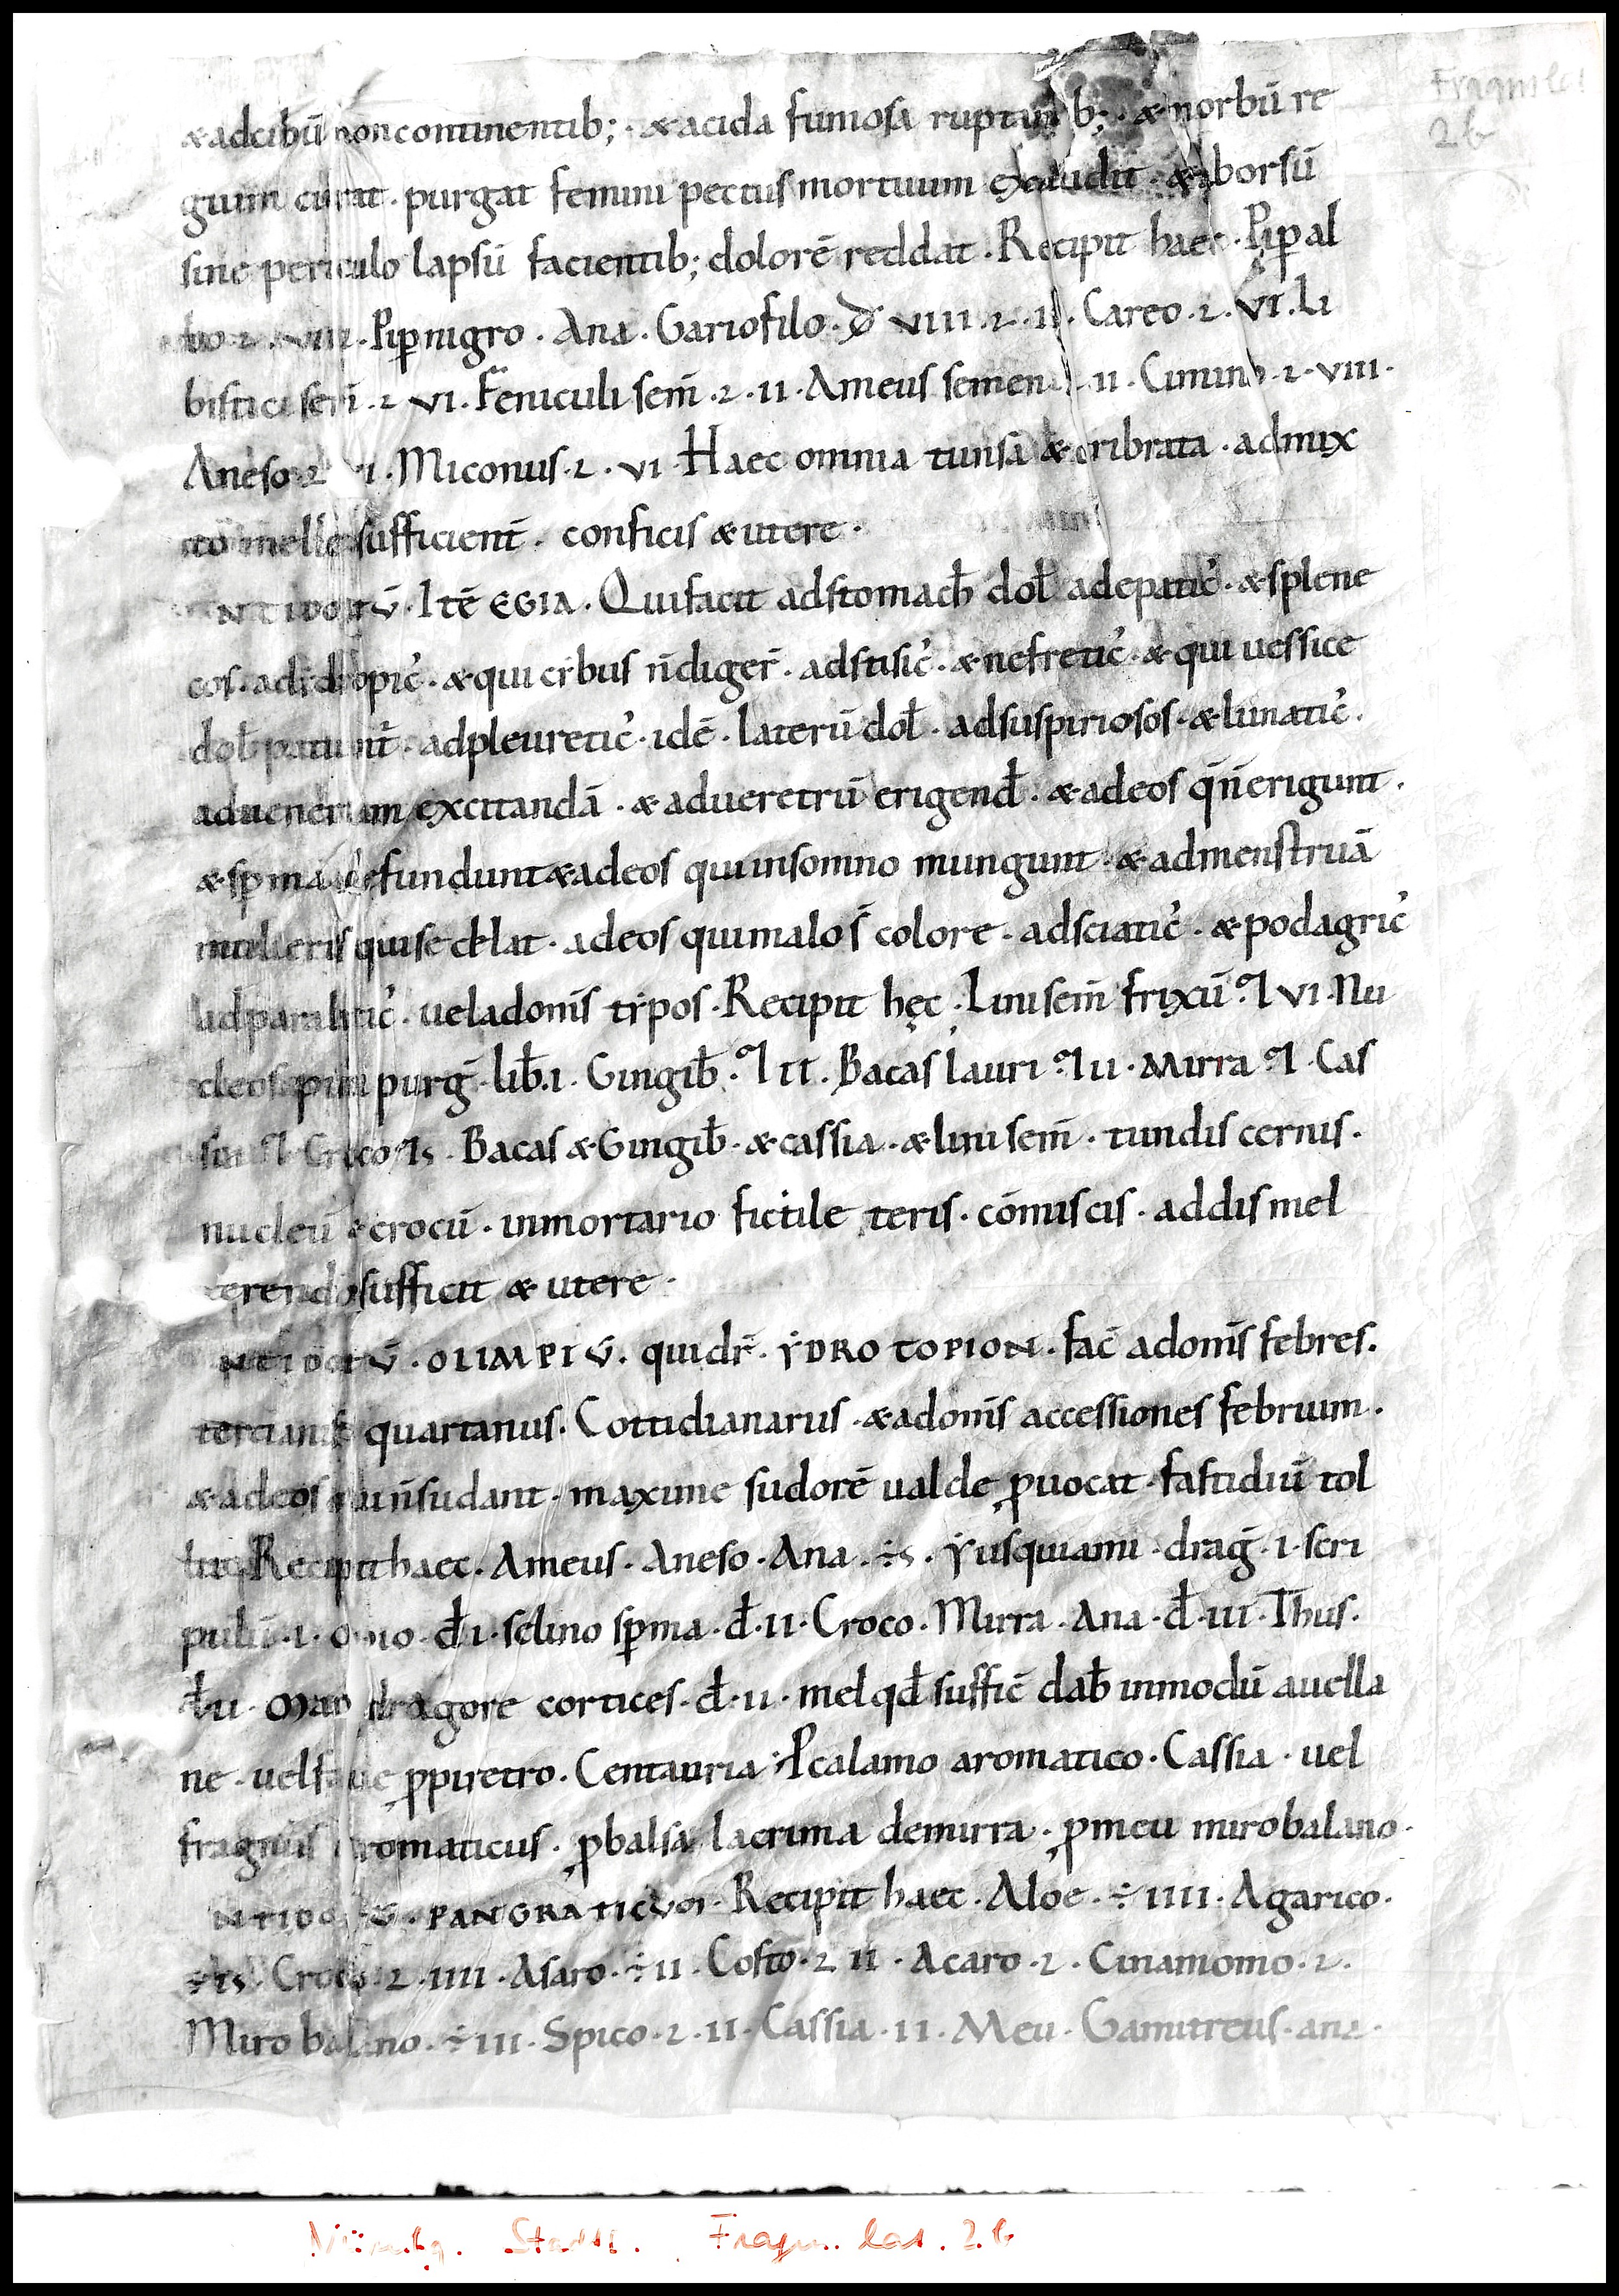 Fragm lat
2b
& adcibū non continentib; · & acida fumosa ruptur b; · & morbū re
gium curat · purgat femini pectus mortuum excludit · & aborsū
sine periculo lapsū facientib; dolorē reddat · Recipit haec · Piꝑ al
bo · 2 · VIII · Piꝑ nigro · Ana · Gariofilo · đ VIII · 2 · II · Careo · 2 · VI · Li
bistici sem̄ · 2 VI · Feniculi sem̄ · 2 · II · Ameus semen · II · Cimino · 2 · VIII ·
Aneso · 2 I · Miconus · 2 · VI · Haec omnia tunsa & cribrata · admix
to melle sufficient̄ · conficis & utere ·
NTIDOTŪ · Itē EGIA · Qui facit adstomach̄ dol̄ adepatic̓ · & splene
cos · adidropic̓ · & qui cibus n̄ diger̄ · adstisic̓ · & nefretic̓ · & qui uessice
dol̄ patiunt̄ · adpleuretic̓ · idē · laterū dol̄ · adsuspiriosos · & lunatic̓ ·
aduenerem excitandā · & adueretrū erigend̄ · & adeos q̄ n̄ erigunt ·
& sꝑma defundunt & adeos qui insomno mungunt · & admenstruā
mulieris qui se celat · adeos qui malo s̄ colore · adsciatic̓ · & podagric̓
ad paralitic̓ · uel adom̄s tipos · Recipit hęc · Lini sem̄ frixū · ꟼ VI · Nu
cleos pini purḡ · lib̄ · I · Gingib̄ · ꟼ II · Bacas lauri ꟼ II · Mirra ꟼ · Cas
sia ꟼ Croco ꟼ s · Bacas & Gingib̄ · & cassia · & lini sem̄ · tundis cernis ·
nucleū & crocū · inmortario fictile teris · cōmiscis · addis mel
terendo sufficit & utere ·
NTIDOTŪ · OLIMPIŪ · qui dr̄ · ẎDRO TOPION · fac̄ adom̄s febres ·
tercianus quartanus · Cottidianarus · & adom̄s accessiones febrium ·
& adeos qui n̄ sudant · maxime sudorē ualde ꝓuocat · fastidiū tol
lit Recipit haec · Ameus · Aneso · Ana · ÷ s · Ẏusquiami · draḡ · I · scri
pulū · I · Opio · đ I · selino sꝑma · đ · II · Croco · Mirra · Ana · đ · III · Thus ·
đ II · Mandragore cortices · đ · II · mel qđ suffic̄ dab̄ inmodū auella
ne · uel faue ꝓpiretro · Centauria · ꝓ calamo aromatico · Cassia · uel
fragmis aromaticus · ꝓbalsā lacrima demirra · ꝓmeu mirobalano ·
NTIDOTŪ · PANGRATICUM · Recipit haec · Aloe · ÷ IIII · Agarico ·
÷ Is · Croco · 2 · IIII · Asaro · ÷ II · Costo · 2 II · Acaro · 2 · Cinamomo · 2 ·
Mirobalano · ÷ III · Spico · 2 · II · Cassia · II · Meu · Gamitreus · ana ·
Nürnbg. Stadtb. Fragm. lat. 2b